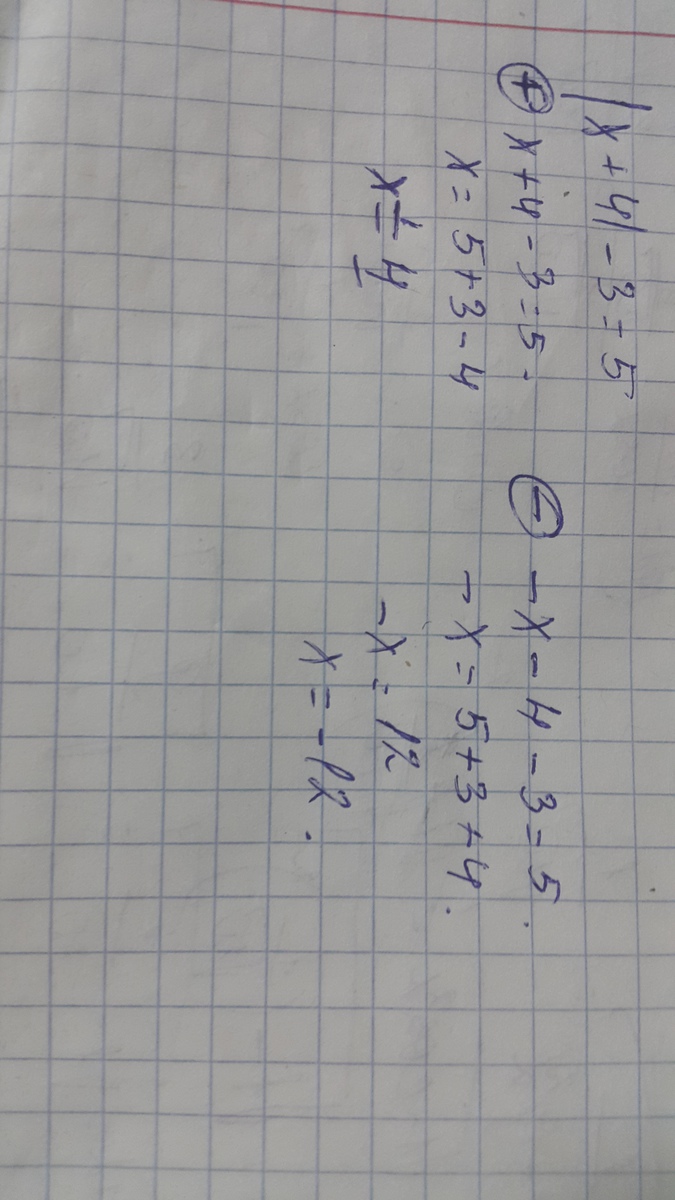 |x + 4| - 3 = 5
⊕ x + 4 - 3 = 5.
x = 5 + 3 - 4
x = 4
⊖ - x - 4 - 3 = 5.
- x = 5 + 3 + 4.
- x = 12
x = - 12.